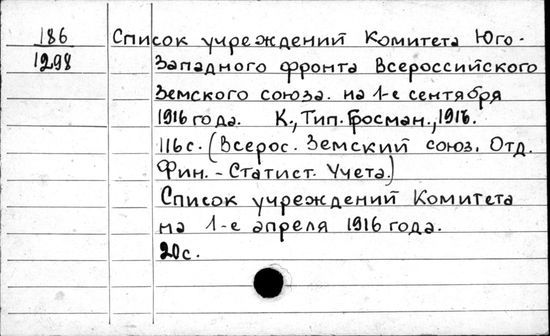 186
1298
Список учреждений Комитета Юго-
Западного фронта Всероссийского
Земского союза. на 1-е сентября
1916 года. К., Тип. Гросман., 1916.
116 с. (Всерос. Земский союз. Отд.
Фин. - Статист. Учета.)
Список учреждений Комитета
на 1-е апреля 1916 года.
20 с.